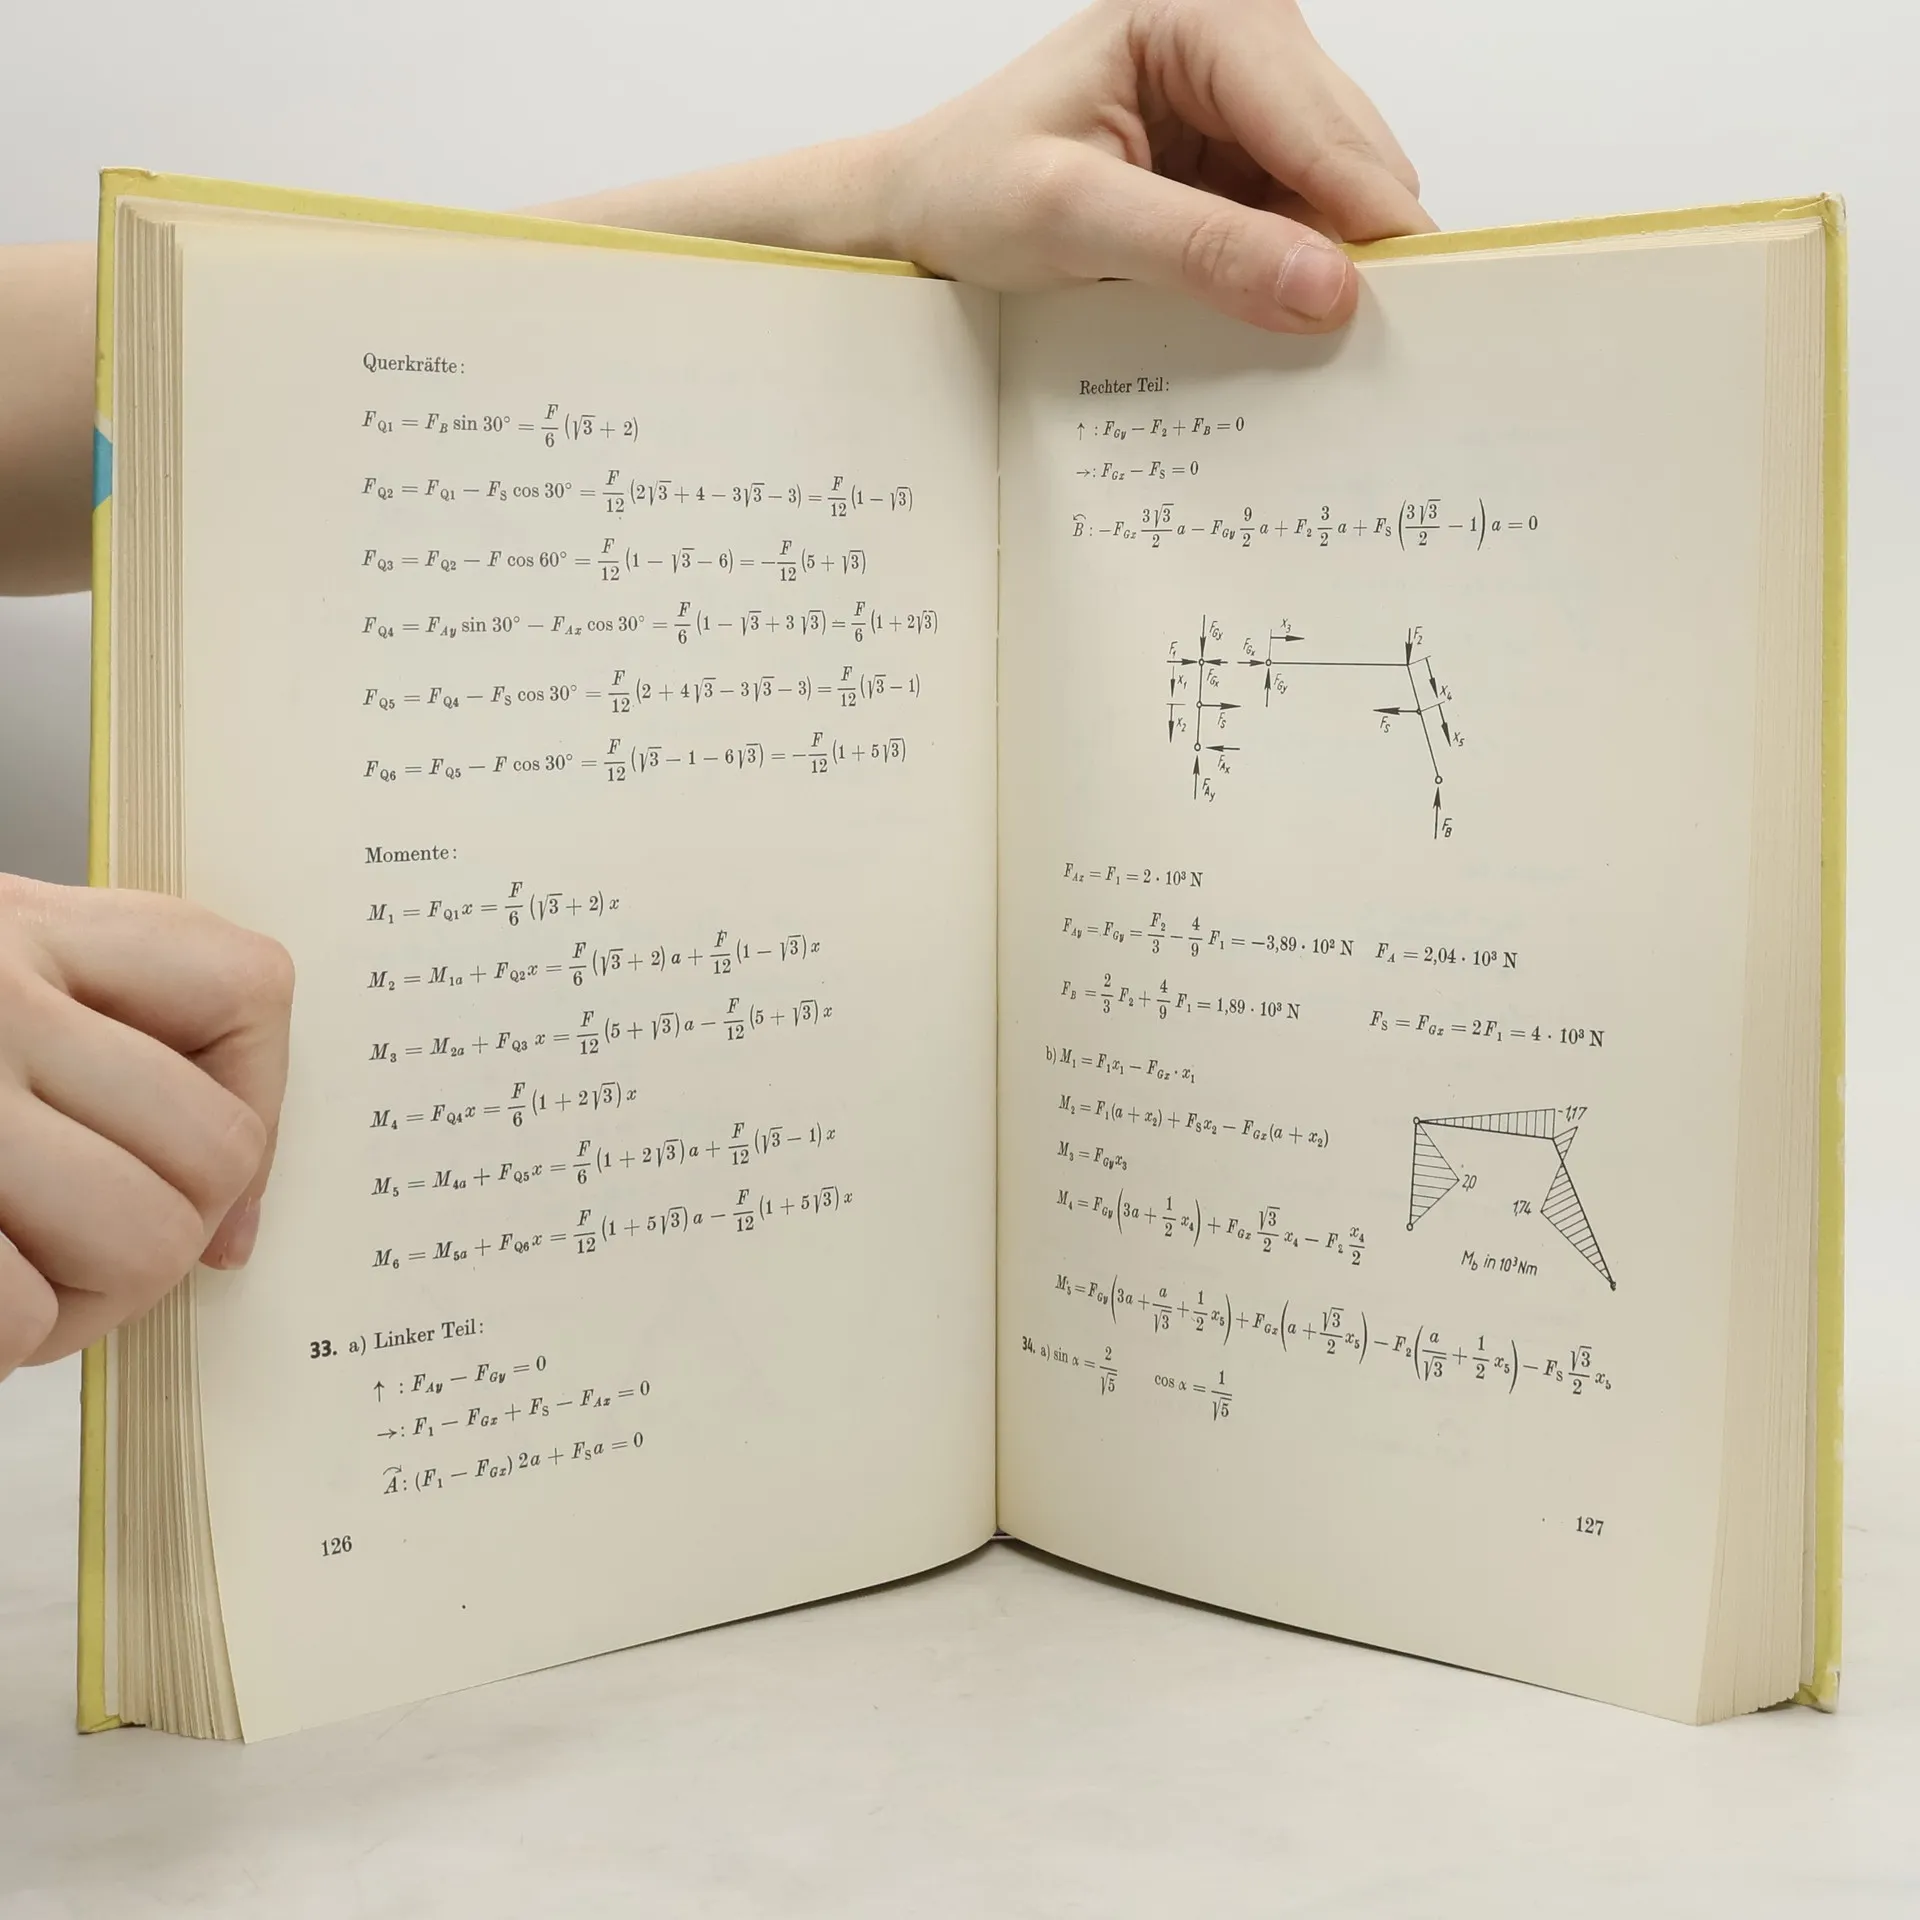 Querkräfte:
F_Q1 = F_B sin 30° = F/6 (√3 + 2)
F_Q2 = F_Q1 − F_S cos 30° = F/12 (2√3 + 4 − 3√3 − 3) = F/12 (1 − √3)
F_Q3 = F_Q2 − F cos 60° = F/12 (1 − √3 − 6) = −F/12 (5 + √3)
F_Q4 = F_Ay sin 30° − F_Ax cos 30° = F/6 (1 − √3 + 3√3) = F/6 (1 + 2√3)
F_Q5 = F_Q4 − F_S cos 30° = F/12 (2 + 4√3 − 3√3 − 3) = F/12 (√3 − 1)
F_Q6 = F_Q5 − F cos 30° = F/12 (√3 − 1 − 6√3) = −F/12 (1 + 5√3)
Momente:
M_1 = F_Q1 x = F/6 (√3 + 2) x
M_2 = M_1a + F_Q2 x = F/6 (√3 + 2) a + F/12 (1 − √3) x
M_3 = M_2a + F_Q3 x = F/12 (5 + √3) a − F/12 (5 + √3) x
M_4 = F_Q4 x = F/6 (1 + 2√3) x
M_5 = M_4a + F_Q5 x = F/6 (1 + 2√3) a + F/12 (√3 − 1) x
M_6 = M_5a + F_Q6 x = F/12 (1 + 5√3) a − F/12 (1 + 5√3) x
33. a) Linker Teil:
↑ : F_Ay − F_Gy = 0
→: F_1 − F_Gx + F_S − F_Ax = 0
A: (F_1 − F_Gx) 2a + F_S a = 0
126
Rechter Teil:
↑ : F_Gy − F_2 + F_B = 0
→: F_Gx − F_S = 0
B: −F_Gx 3√3/2 a − F_Gy 9/2 a + F_2 3/2 a + F_S (3√3/2 − 1) a = 0
F_Gy x_3 F_2
F_1 F_Gx F_Gx
x_1 F_Gy x_4
x_2 F_S F_S x_5
F_Ax
F_Ay
F_B
F_Ax = F_1 = 2 · 10³ N
F_Ay = F_Gy = F_2/3 − 4/9 F_1 = −3,89 · 10² N F_A = 2,04 · 10³ N
F_B = 2/3 F_2 + 4/9 F_1 = 1,89 · 10³ N F_S = F_Gx = 2F_1 = 4 · 10³ N
b) M_1 = F_1 x_1 − F_Gx · x_1
M_2 = F_1(a + x_2) + F_S x_2 − F_Gx(a + x_2)
M_3 = F_Gy x_3
M_4 = F_Gy (3a + 1/2 x_4) + F_Gx √3/2 x_4 − F_2 x_4/2
−1,17
2,0
1,74
M_b in 10³ Nm
M_5 = F_Gy (3a + a/√3 + 1/2 x_5) + F_Gx (a + √3/2 x_5) − F_2 (a/√3 + 1/2 x_5) − F_S √3/2 x_5
34. a) sin α = 2/√5 cos α = 1/√5
127